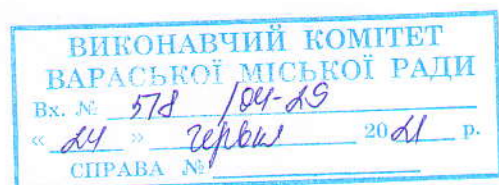 ВИКОНАВЧИЙ КОМІТЕТ
ВАРАСЬКОЇ МІСЬКОЇ РАДИ
Вх. № 578 /04-29
« 24 » червня 2021 р.
СПРАВА №